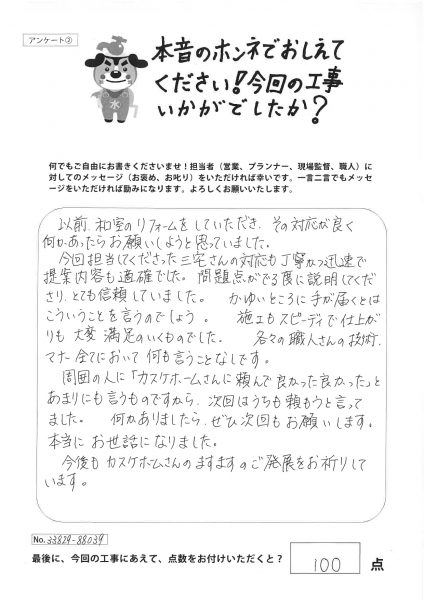 アンケート②
本音のホンネでおしえて
ください!今回の工事
いかがでしたか?
水
何でもご自由にお書きくださいませ!担当者（営業、プランナー、現場監督、職人）に
対してのメッセージ（お褒め、お叱り）をいただければ幸いです。一言二言でもメッセ
ージをいただければ励みになります。よろしくお願いいたします。
以前、和室のリフォームをしていただき、その対応が良く
何かあったらお願いしようと思っていました。
今回担当してくださった三宅さんの対応も丁寧かつ迅速で
提案内容も適確でした。問題点がでる度に説明してくだ
さり、とても信頼していました。かゆいところに手が届くとは
こういうことを言うのでしょう。施工もスピーディで仕上が
りも大変満足のいくものでした。各々の職人さんの技術、
マナー全てにおいて何も言うことなしです。
周囲の人に「カスケホームさんに頼んで良かった良かった」と
あまりにも言うものですから、次回はうちも頼もうと言って
ました。何かありましたら、ぜひ次回もお願いします。
本当にお世話になりました。
今後もカスケホームさんのますますのご発展をお祈りして
います。
No.33829-88039
最後に、今回の工事にあえて、点数をお付けいただくと? 100 点